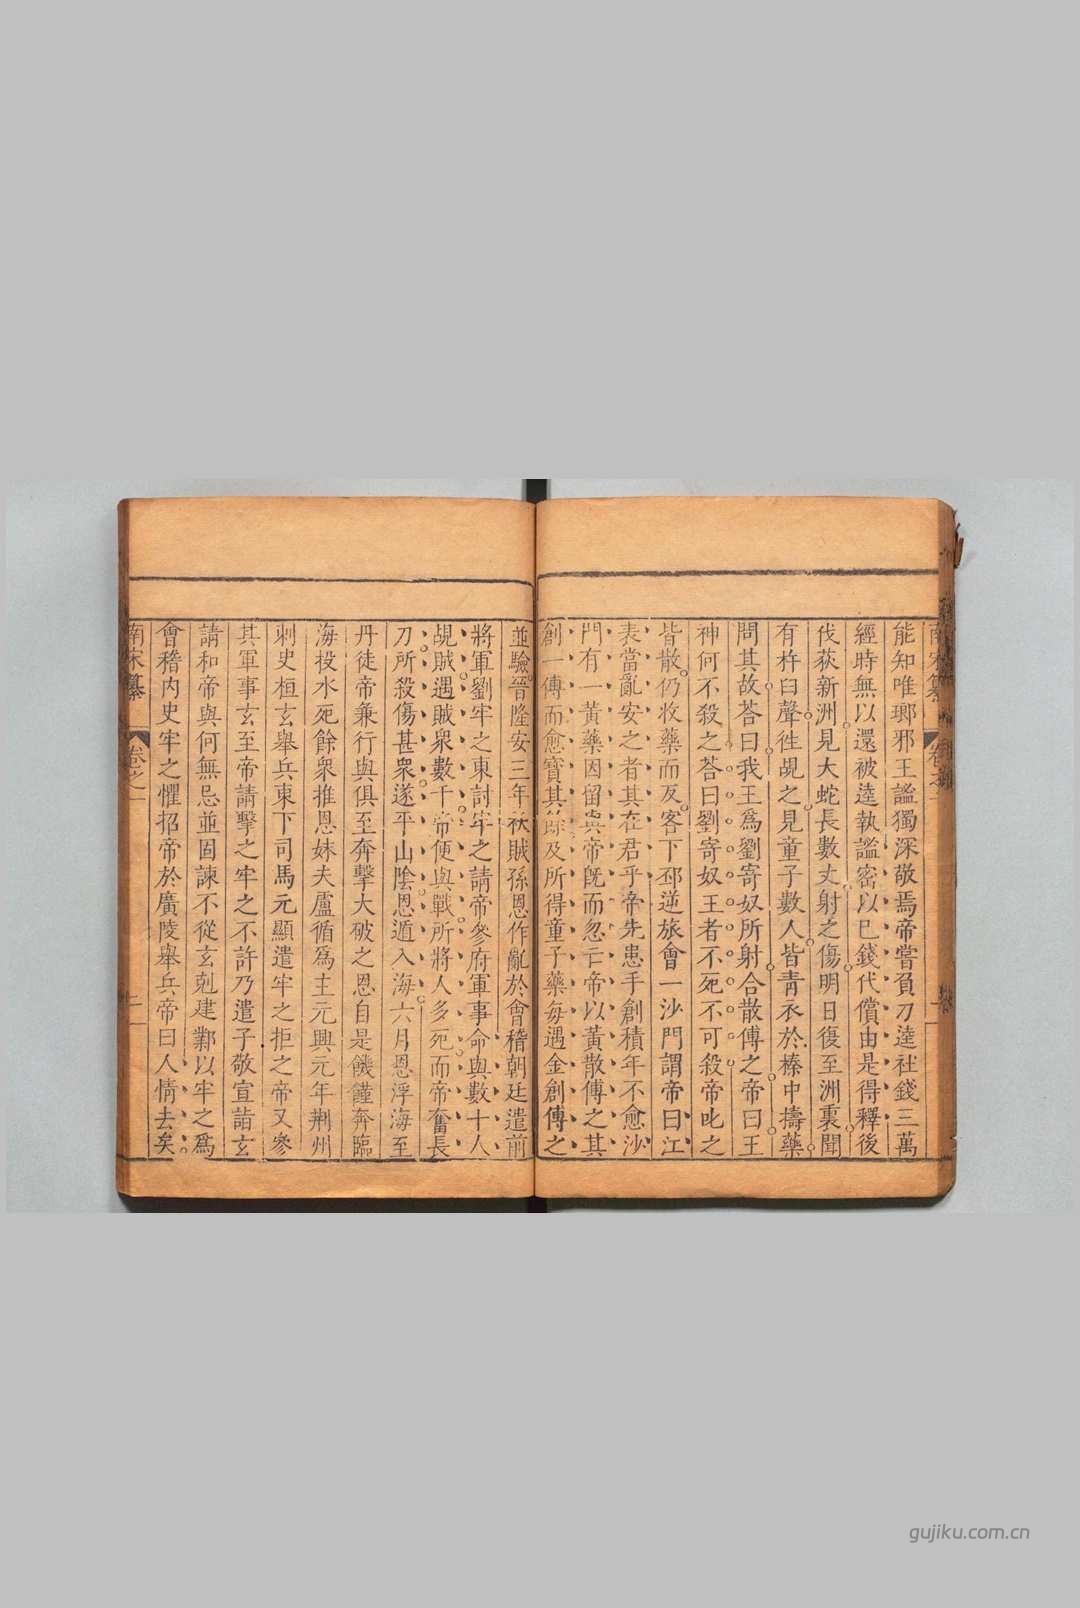 能知唯瑯邪王謐獨深敬焉帝嘗負刀逵社錢三萬
經時無以還被逵執謐密以已錢代償由是得釋後
伐荻新洲見大蛇長數丈射之傷明日復至洲裏聞
有杵臼聲徃覘之見童子數人皆青衣於榛中擣藥
問其故荅曰我王爲劉寄奴所射合散傅之帝曰王
神何不殺之荅曰劉寄奴王者不死不可殺帝叱之
皆散仍收藥而反客下邳逆旅會一沙門謂帝曰江
表當亂安之者其在君乎帝先患手創積年不愈沙
門有一黃藥因留與帝旣而忽亡帝以黃散傅之其
創一傅而愈寶其餘及所得童子藥每遇金創傅之
並驗晉隆安三年秋賊孫恩作亂於會稽朝廷遣前
將軍劉牢之東討牢之請帝參府軍事命與數十人
覘賊遇賊衆數千帝便與戰所將人多死而帝奮長
刀所殺傷甚衆遂平山陰恩遁入海六月恩浮海至
丹徒帝兼行與俱至奔擊大破之恩自是饑饉奔臨
海投水死餘衆推恩妹夫盧循爲主元興元年荆州
刺史桓玄舉兵東下司馬元顯遣牢之拒之帝又參
其軍事玄至帝請擊之牢之不許乃遣子敬宣詣玄
請和帝與何無忌並固諫不從玄剋建鄴以牢之爲
會稽内史牢之懼招帝於廣陵舉兵帝曰人情去矣
南宋纂
卷之一
二
gujiku.com.cn